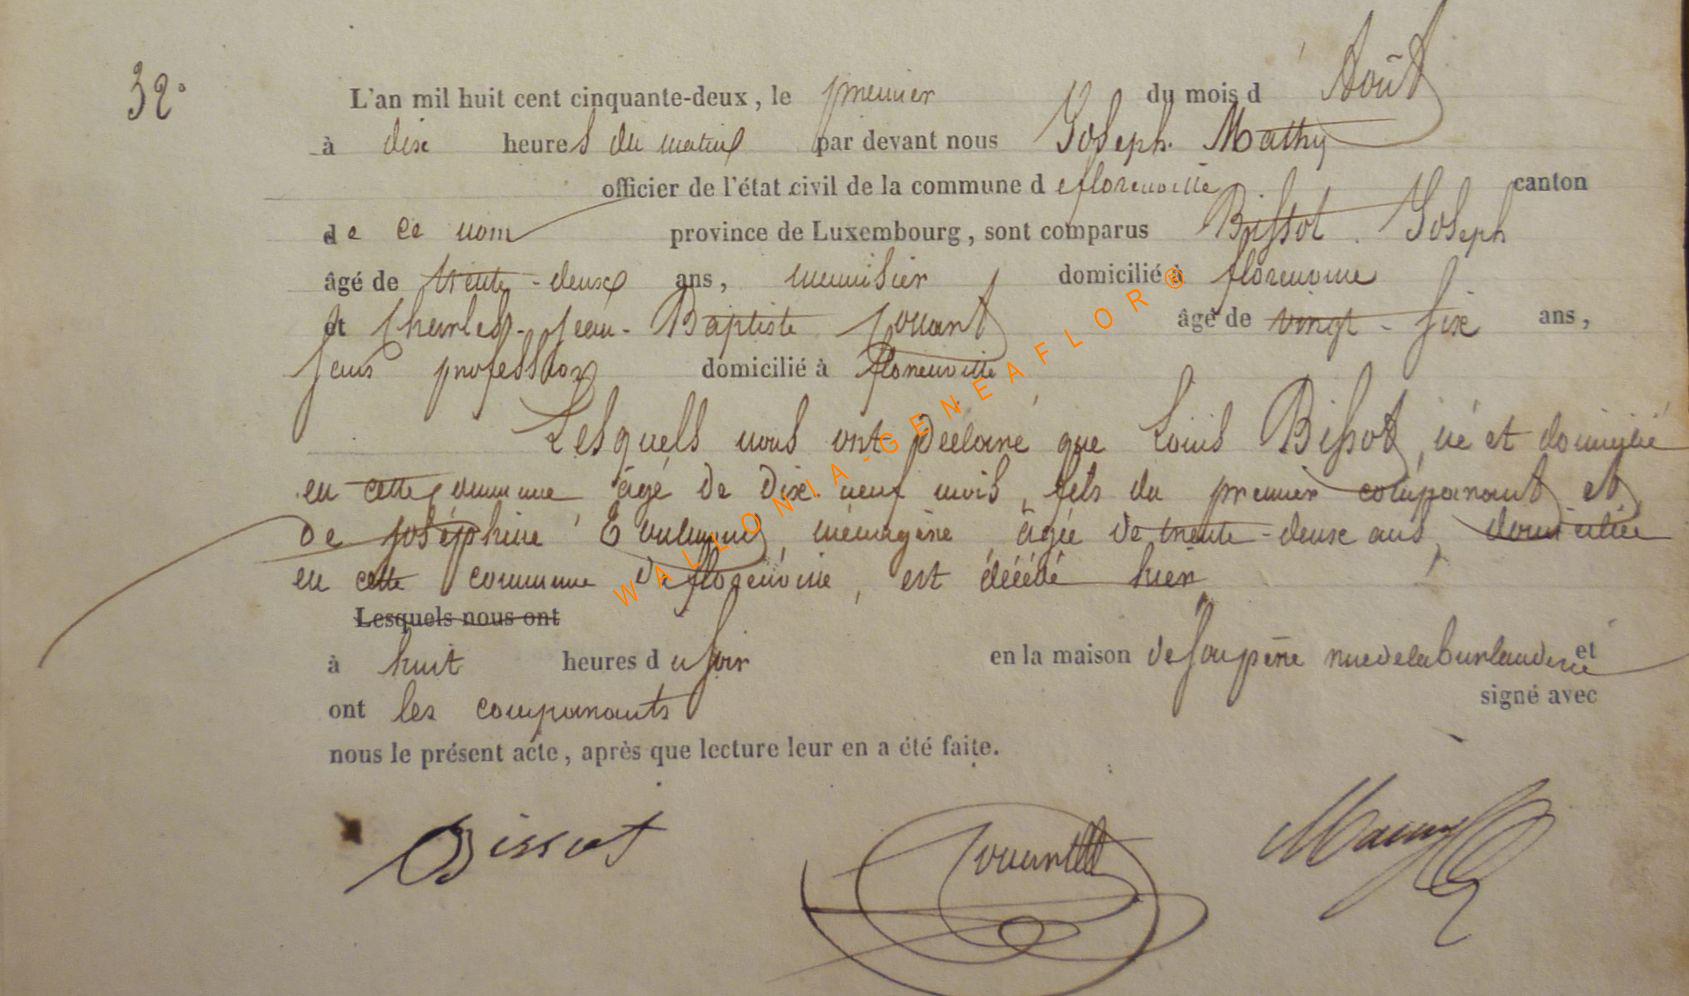 32°
L'an mil huit cent cinquante-deux, le premier du mois d' Août
à dix heures du matin par devant nous Joseph Mathy
officier de l'état civil de la commune de florenville canton
de ce nom province de Luxembourg, sont comparus Bissot Joseph
âgé de trente-deux ans, menuisier domicilié à florenville
et Charles-Jean-Baptiste âgé de vingt-six ans,
sans profession domicilié à florenville
Lesquels nous ont Déclaré que Louis Bissot, né et domicilié
en cette commune âgé de dix neuf mois, fils du premier comparant et
de Joséphine ménagère âgée de trente-deux ans, domiciliée
en cette commune de florenville, est décédé hier
Lesquels nous ont
à huit heures du soir en la maison de son père rue de la et
ont les comparants signé avec
nous le présent acte, après que lecture leur en a été faite.
Bissot
WALLONIA-GENEAFLOR®